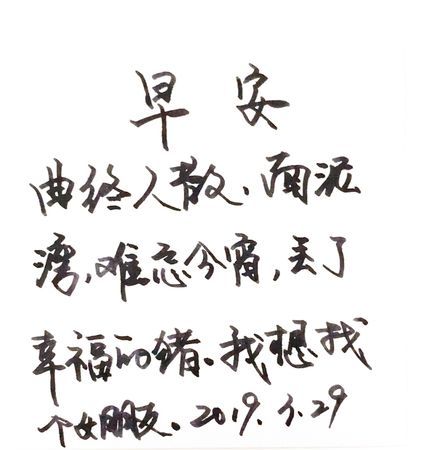 早安
曲终人散、南泥
湾,难忘今宵,丢了
幸福的错、我想找
个女朋友。2019.5.29